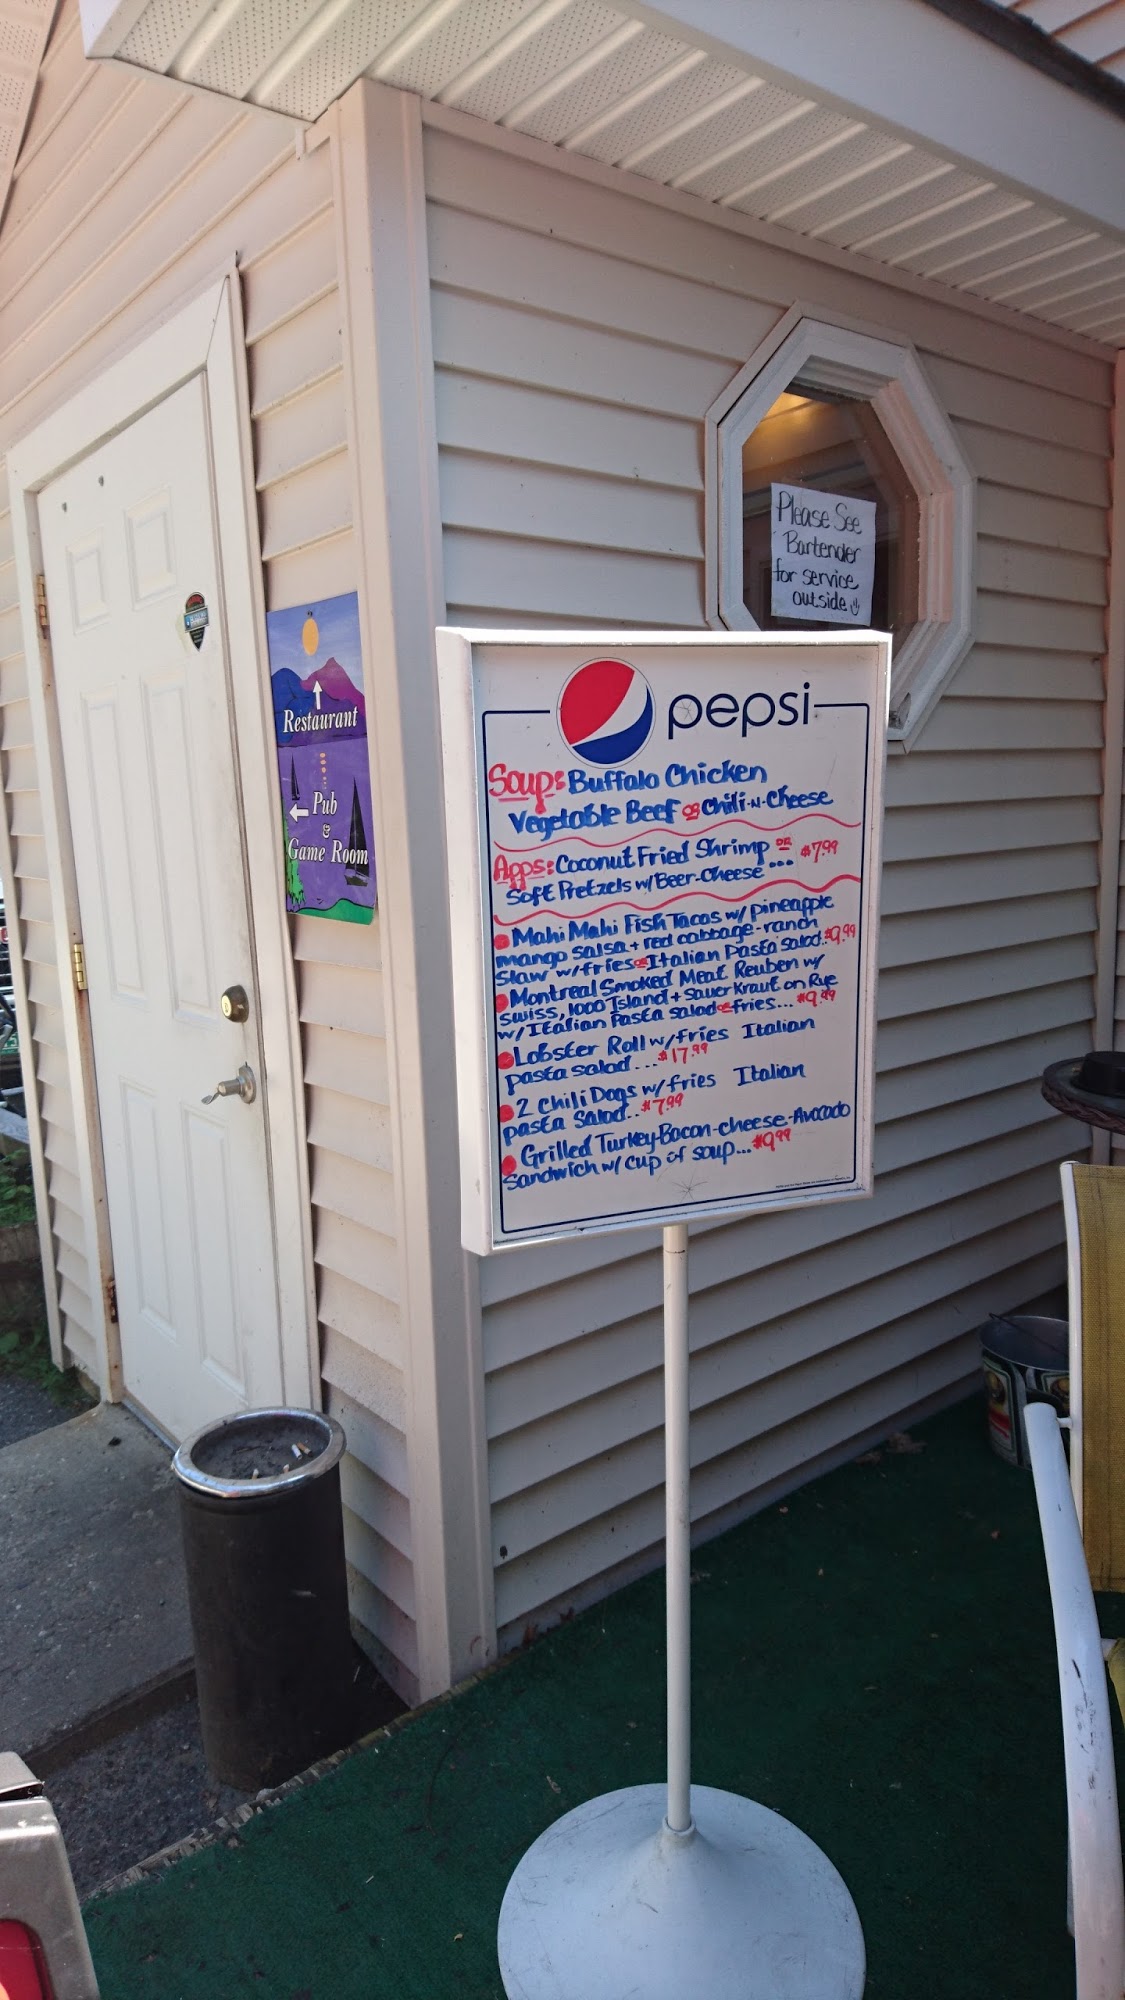 Please See
Bartender
for service
outside
Restaurant
Pub
&
Game Room
pepsi
Soup: Buffalo Chicken
Vegetable Beef OR Chili-N-Cheese
Apps: Coconut Fried Shrimp OR
Soft Pretzels w/Beer-Cheese ... $7.99
• Mahi Mahi Fish Tacos w/ pineapple
mango salsa + red cabbage-ranch
Slaw w/fries OR Italian Pasta salad.. $9.99
• Montreal Smoked Meat Reuben w/
swiss, 1000 Island + Sauer Kraut on Rye
w/Italian Pasta salad OR fries... $9.99
• Lobster Roll w/fries Italian
pasta salad... $17.99
• 2 Chili Dogs w/fries Italian
pasta Salad.. $7.99
• Grilled Turkey-Bacon-cheese-Avocado
Sandwich w/ cup of soup... $9.99